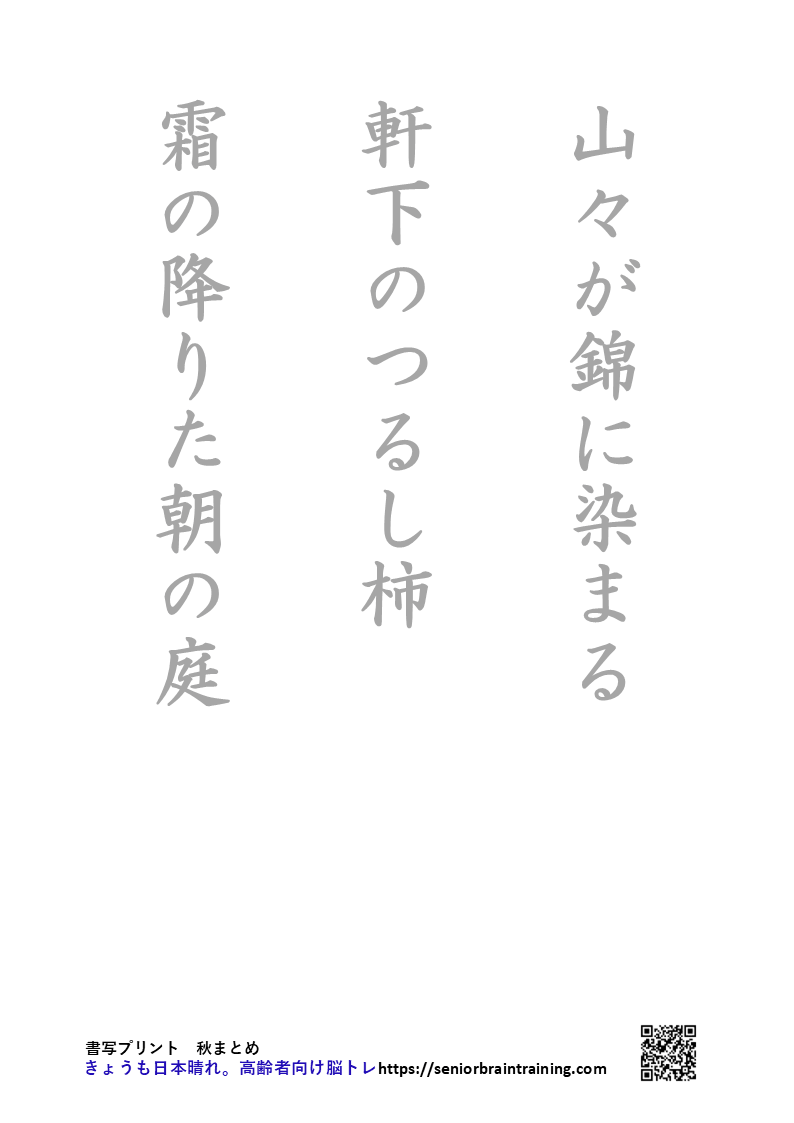 山々が錦に染まる
軒下のつるし柿
霜の降りた朝の庭
書写プリント　秋まとめ
きょうも日本晴れ。高齢者向け脳トレhttps://seniorbraintraining.com